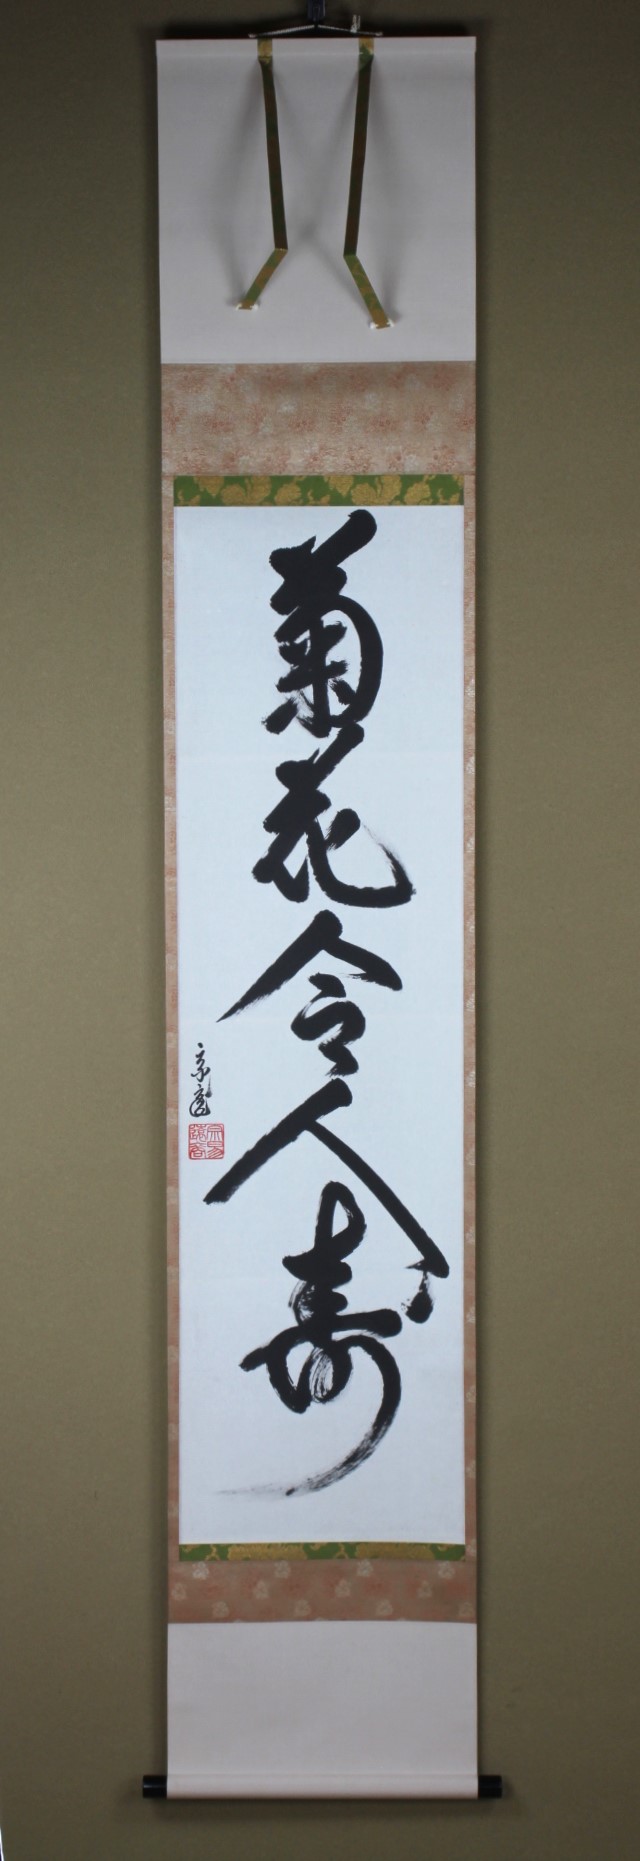 菊花令人寿